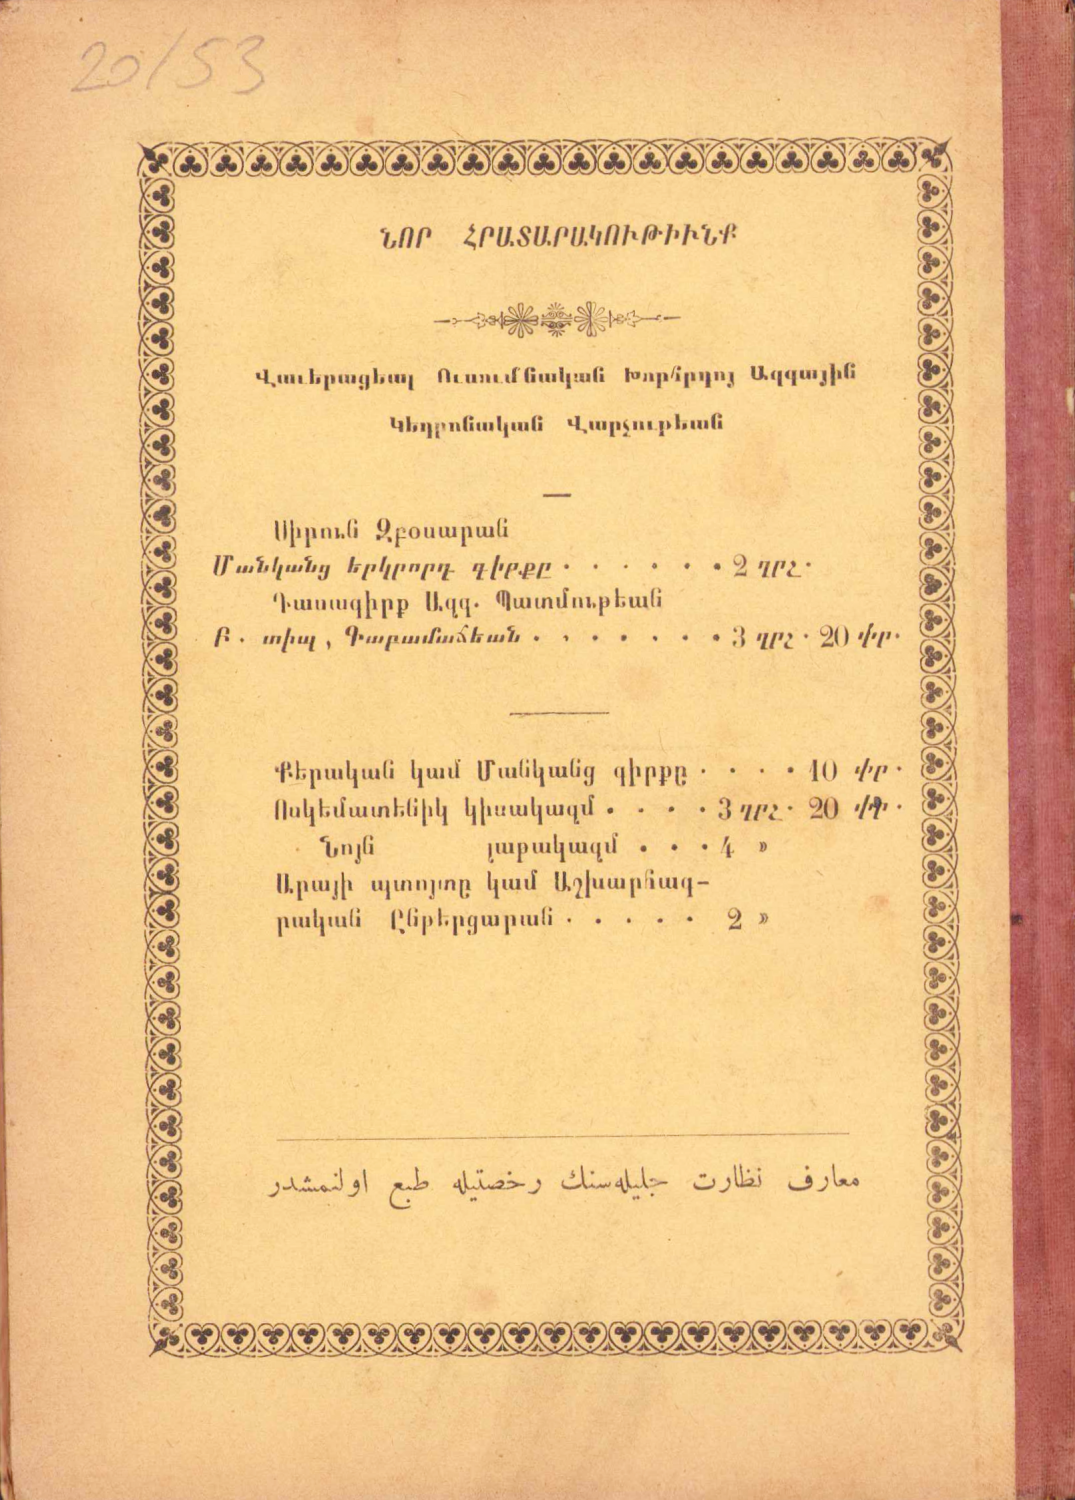 20/53
ՆՈՐ ՀՐԱՏԱՐԱԿՈՒԹԻՒՆՔ
Վաւերացեալ Ուսումնական Խորհրդոյ Ազգային
Կեդրոնական Վարչութեան
Սիրուն Զբօսարան
Մանկանց երկրորդ գիրքը . . . . . . 2 ղրշ.
Դասագիրք Ազգ. Պատմութեան
Բ. տիպ, Գաբամաճեան . . . . . . . 3 ղրշ. 20 փր.
Քերական կամ Մանկանց գիրքը . . . . 10 փր.
Ոսկեմատենիկ կիսակազմ . . . . 3 ղրշ. 20 փր.
Նոյն լաթակազմ . . . 4 »
Արայի պտոյտը կամ Աշխարհագ–
րական Ընթերցարան . . . . . 2 »
معارف نظارت جليله‌سنك رخصتيله طبع اولنمشدر